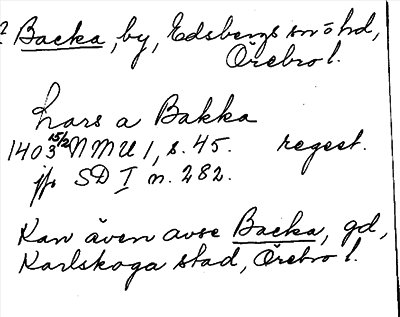 ? Backa, by, Edsbergs sn o hd,
Örebro l.
Lars a Bakka
1403 15/2 NMU 1, s. 45. regest.
jfr SD I n. 282.
Kan även avse Backa, gd,
Karlskoga stad, Örebro l.